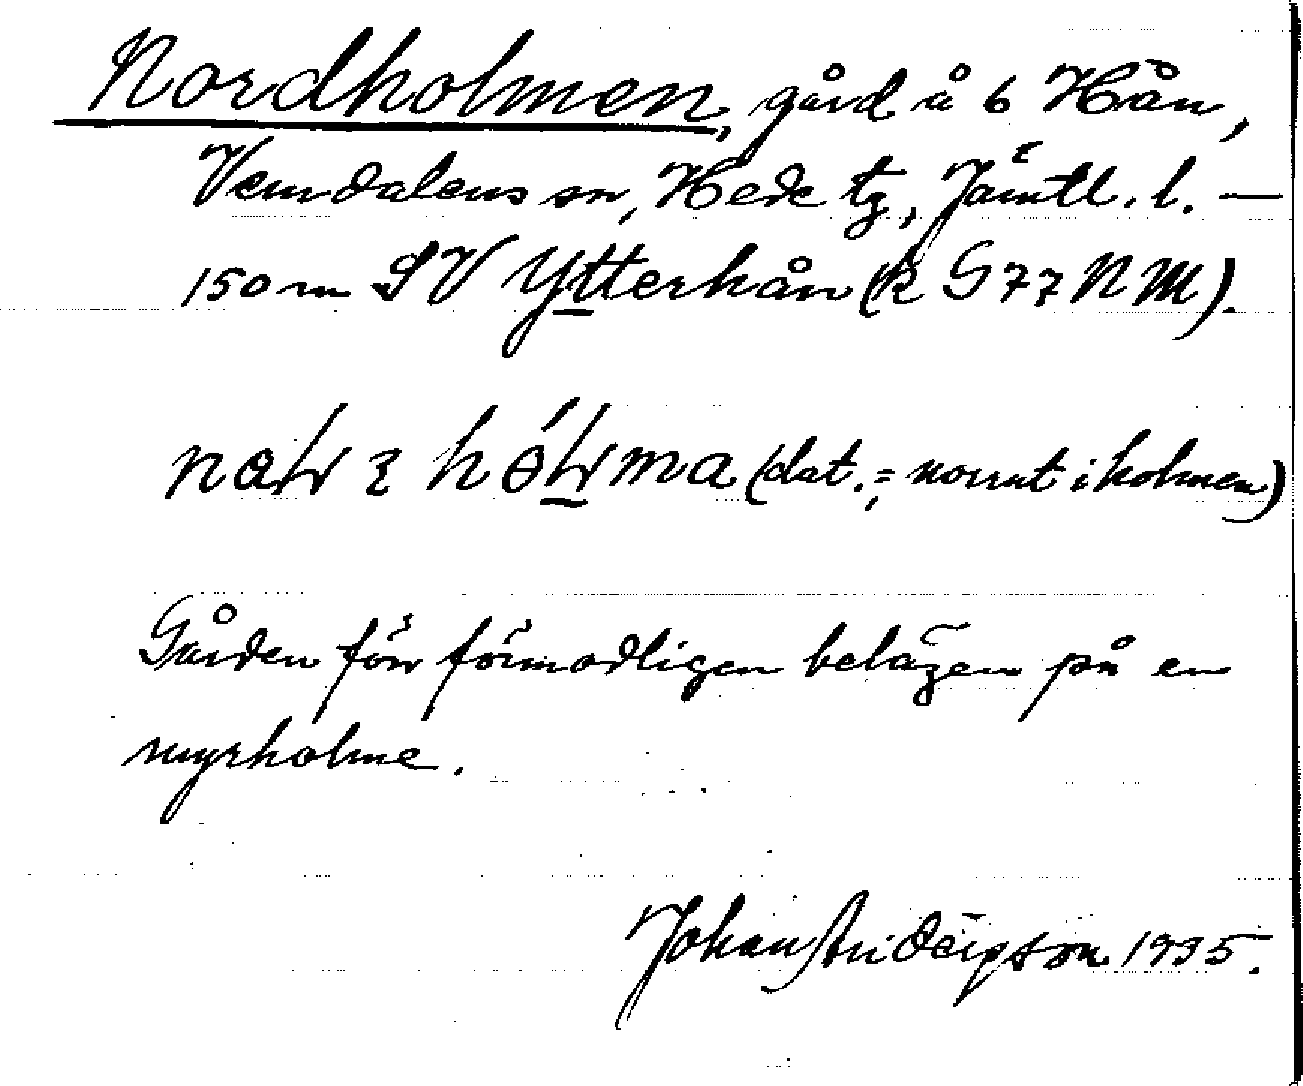 Nordholmen, gård å 6 Hån,
Vemdalens sn, Hede tg, Jämtl. l. —
150 m SV Ytterhån (R G 77 N M).
(dat.; = norrut i holmen)
Gården förr förmodligen belägen på en
myrholme.
Johan 1935.